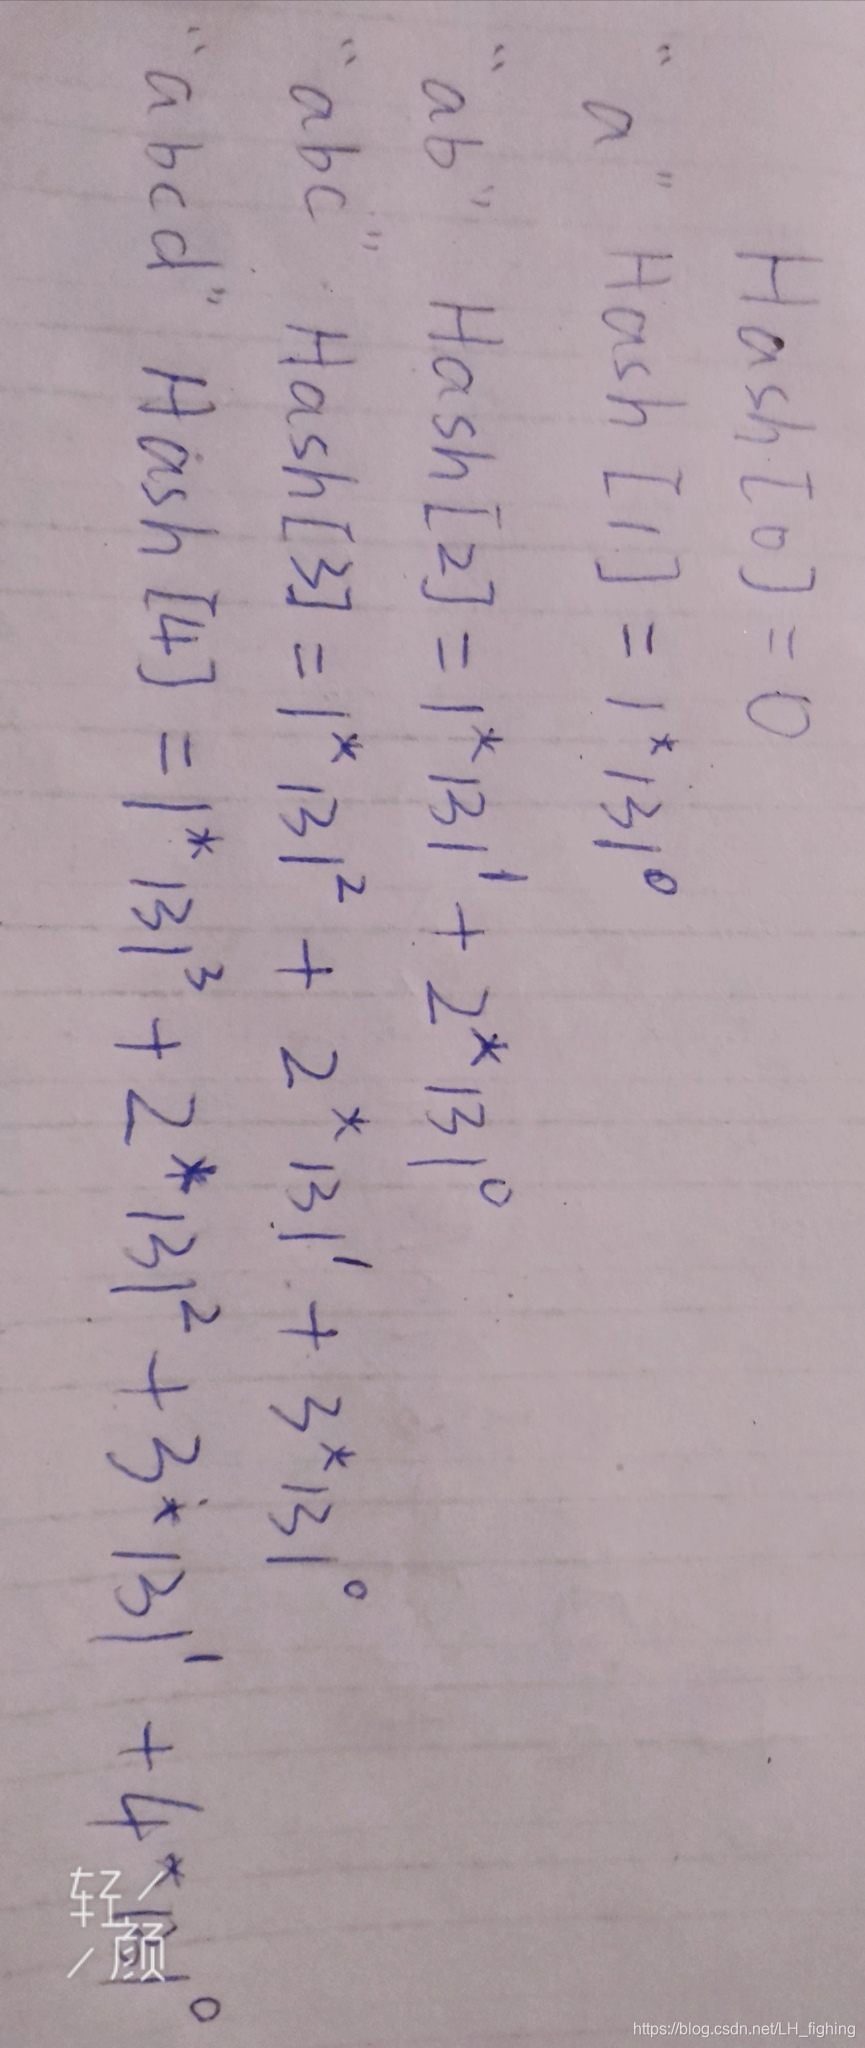 Hash[0] = 0
"a" Hash[1] = 1*131⁰
"ab" Hash[2] = 1*131¹ + 2*131⁰
"abc" Hash[3] = 1*131² + 2*131¹ + 3*131⁰
"abcd" Hash[4] = 1*131³ + 2*131² + 3*131¹ + 4*131⁰
轻颜
https://blog.csdn.net/LH_fighing